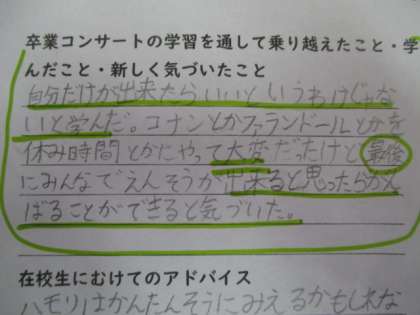 卒業コンサートの学習を通して乗り越えたこと・学
んだこと・新しく気づいたこと
自分だけが出来たらいいというわけじゃな
いと学んだ。コナンとかファランドールとかを
休み時間とかにやって大変だったけど最後
にみんなでえんそうが出来ると思ったらがん
ばることができると気づいた。
在校生にむけてのアドバイス
ハモリはかんたんそうにみえるかもしれな